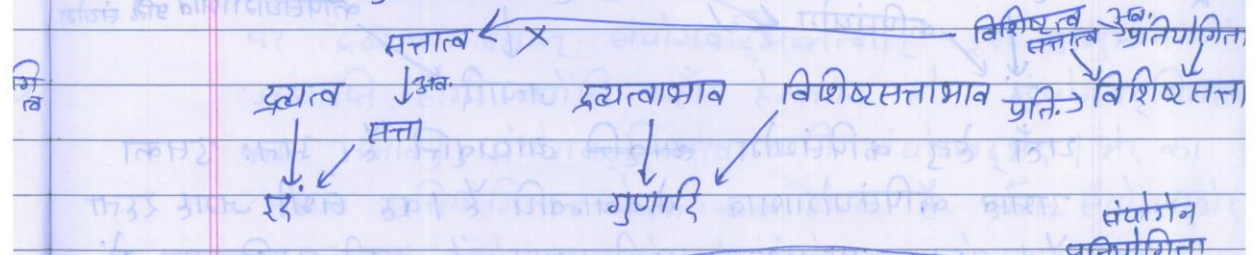 सत्तात्व ← × विशिष्टत्व अव. →
सत्तात्व प्रतियोगिता
द्रव्यत्व ↓अव. द्रव्यत्वाभाव विशिष्टसत्ताभाव प्रति.→ विशिष्ट सत्ता
सत्ता
इदं गुणादि
संयोगेन
प्रतियोगिता